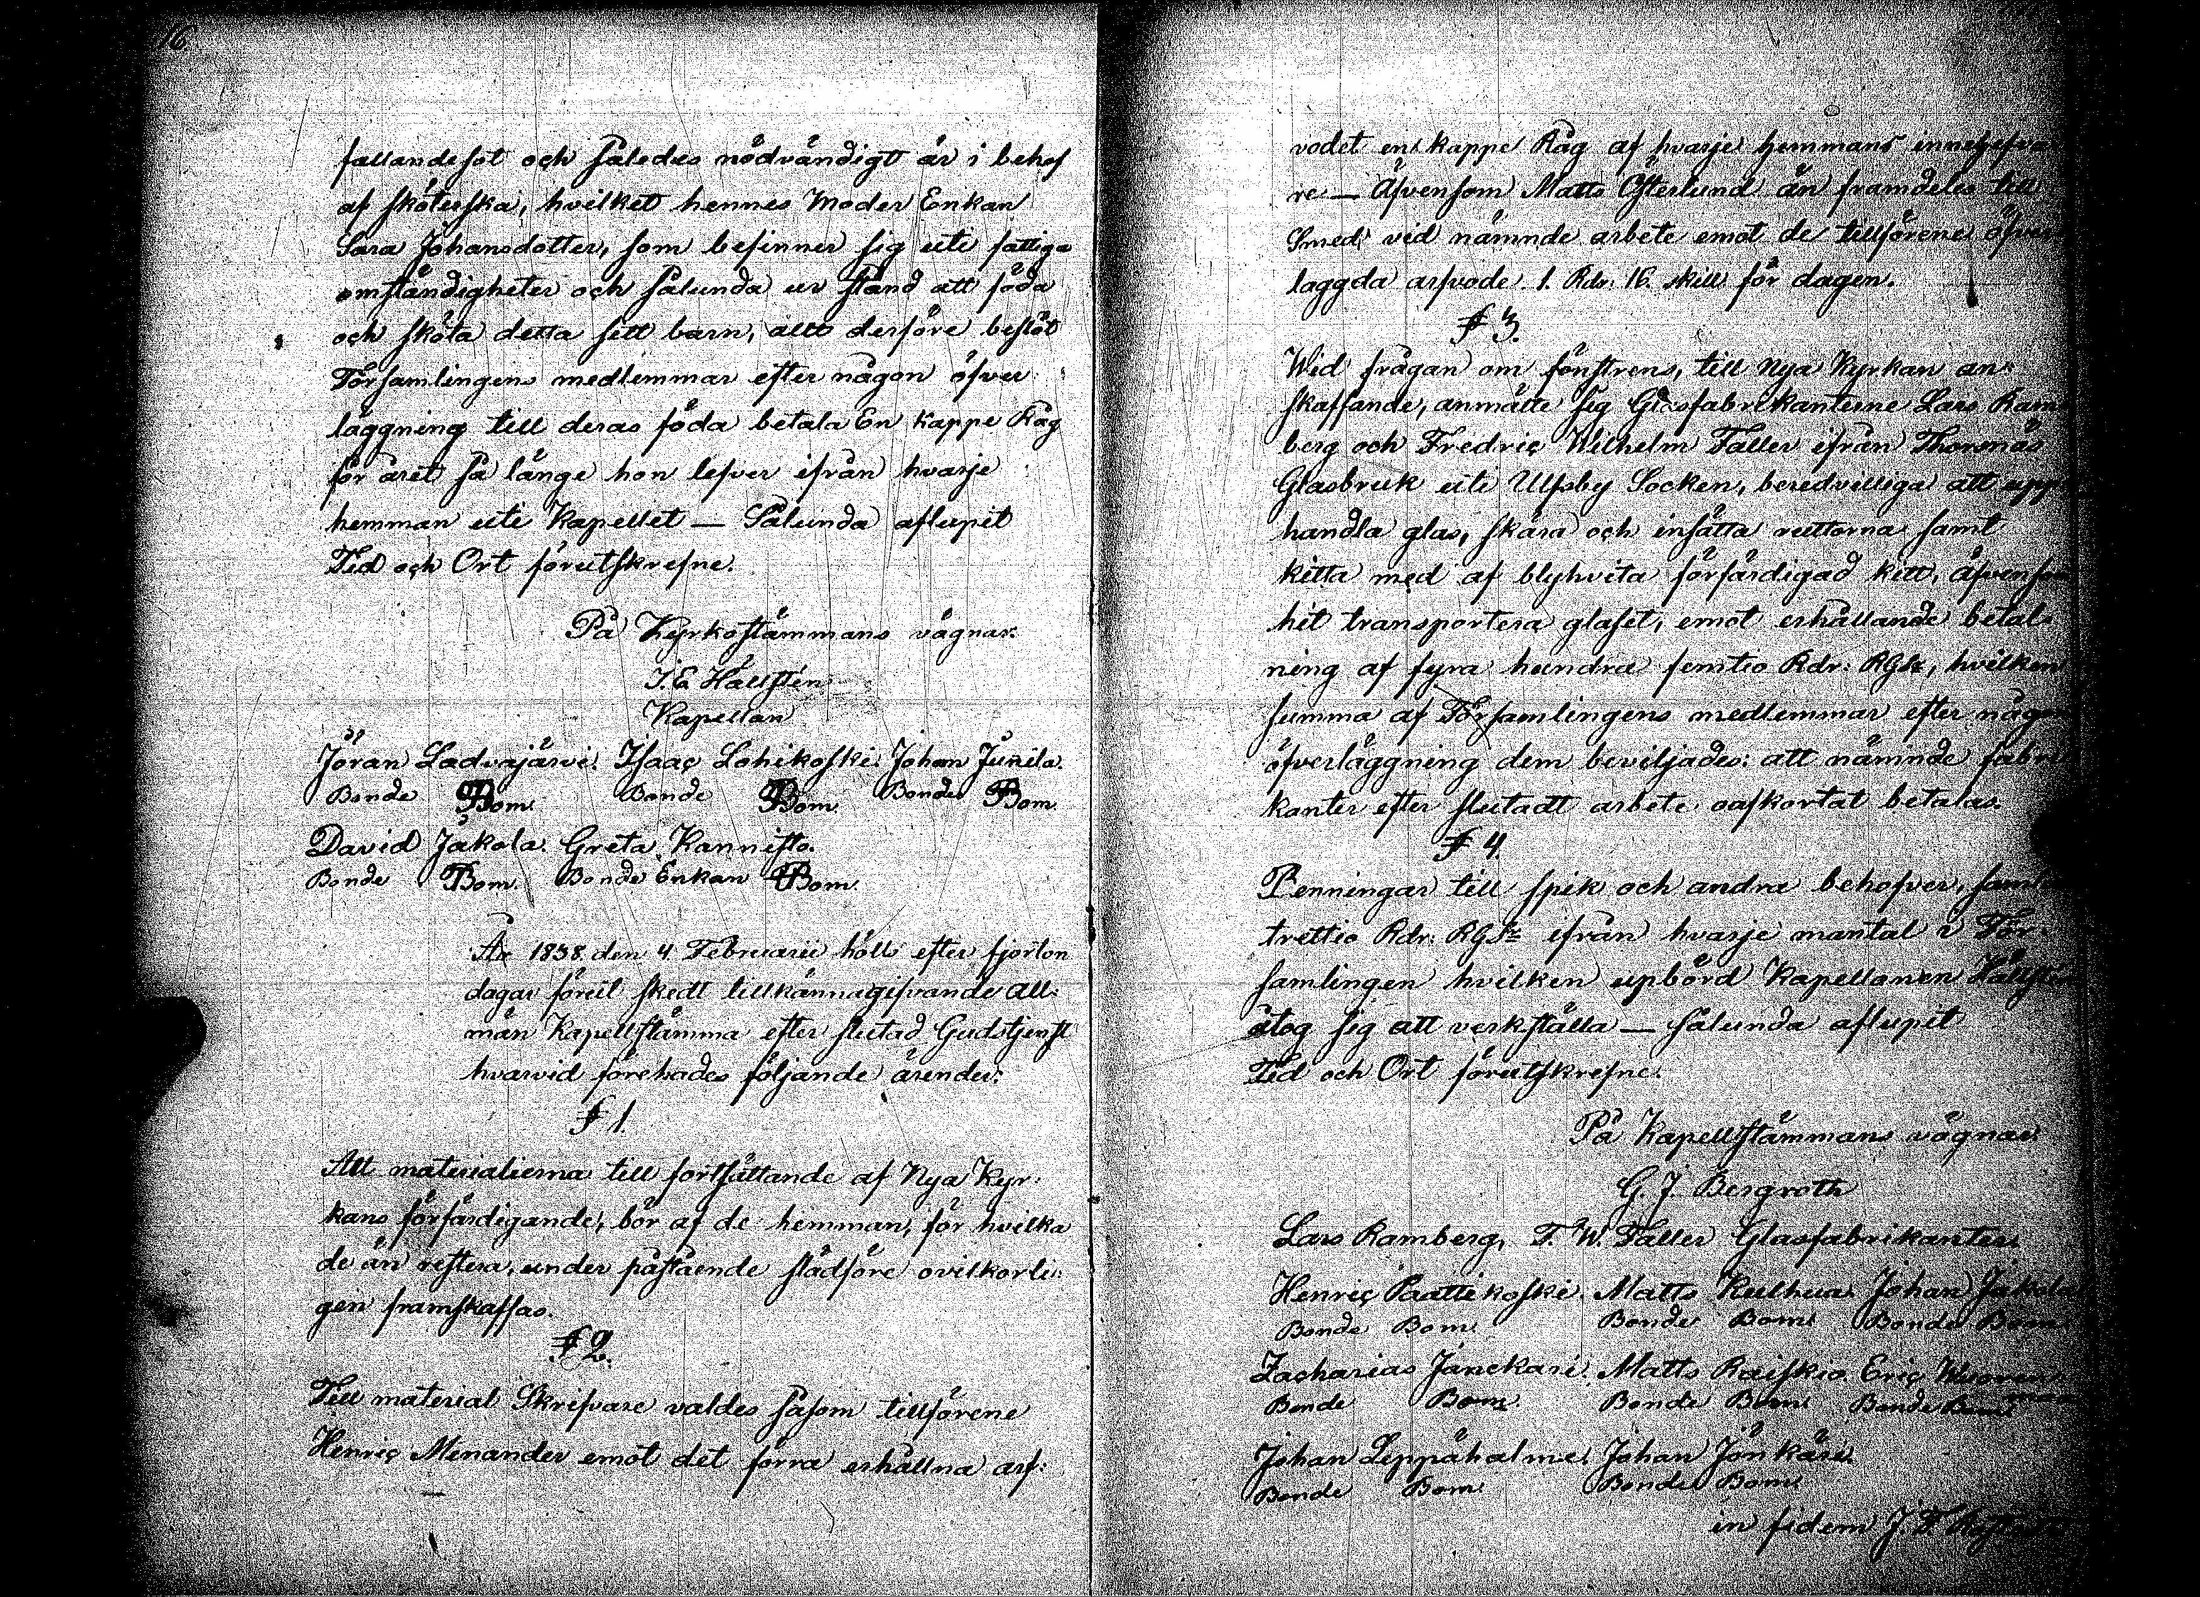 16
fallandesot och således nödvändigt är i behof
af sköterska, hvilket hennes Moder Enkan
Sara Johansdotter, som befinner sig uti fattiga
omständigheter och sålunda ur stånd att föda
och sköta detta sitt barn, allt derföre beslöt
Församlingens medlemmar efter någon öfver
läggning till deras föda betala En kappe Råg
för året så länge hon lefver ifrån hvarje
hemman uti Kapellet — Sålunda aflupit
Tid och Ort förutskrefne.
På Kyrkostämmans vägnar:
J. E Hällstén
Kapellan
Jöran Ladvajärvi. Isaac Lohikoski. Johan Junila.
Bonde Bom. Bonde Bom. Bonde Bom
David Jakola. Greta Kannisto.
Bonde Bom. Bonde Enkan Bom.
År 1838 den 4 Februarii hölls efter fjorton
dagar föreut skedt tillkännagifvande All-
män Kapellstämma efter slutad Gudstjenst
hvarvid förehades följande ärender:
§ 1.
Att materialierna till fortsättande af Nya Kyr-
kans förfärdigande, bör af de hemman, för hvilka
de än restera, under påstående slädföre ovilkorli-
gen framskaffas.
§ 2.
Till material Skrifvare valdes såsom tillförene
Henric Menander emot det förra erhållna arf-
vodet en kappe Råg af hvarje hemmans innehafva
re — Äfvensom Matts Österlund än framdeles till
Smed vid nämnde arbete emot de tillförene öfver
laggda arfvode 1. Rdr. 16. skill för dagen.
§ 3.
Wid frågan om fönstrens, till Nya Kyrkan an-
skaffande, anmälte sig Glasfabrikanterne Lars Ram
berg och Fredric Wilhelm Faller ifrån Thorsnäs
Glasbruk uti Ulfsby Socken, beredvilliga att upp
handla glas, skära och insätta ruttorna samt
kitta med af blyhvita förfärdigad kitt, äfvensom
hit transportera glaset, emot erhållande betal-
ning af fyra hundra femtio Rdr: RGSr, hvilken
summa af Församlingens medlemmar efter någon
öfverläggning dem beviljades: att nämnde fabri
kanter efter slutadt arbete oafkortat betalas.
§ 4.
Penningar till spik och andra behofver, samlas
trettio Rdr: RGSr ifrån hvarje mantal i För-
samlingen hvilken upbörd Kapellanen Hällstén
åtog sig att verkställa — Sålunda aflupit
Tid och Ort förutskrefne.
På Kapellstämmans vägnar:
G. J. Bergroth
Lars Ramberg, F. W. Faller Glasfabrikanter.
Henric Paattikoski. Matts Kulhua. Johan Jakola
Bonde Bom. Bonde Bom. Bonde Bom
Zacharias Jänckari. Matts Raiskio. Eric
Bonde Bom. Bonde Bom. Bonde Bom
Johan Leppähalme. Johan Jönkäri.
Bonde Bom. Bonde Bom.
in fidem J